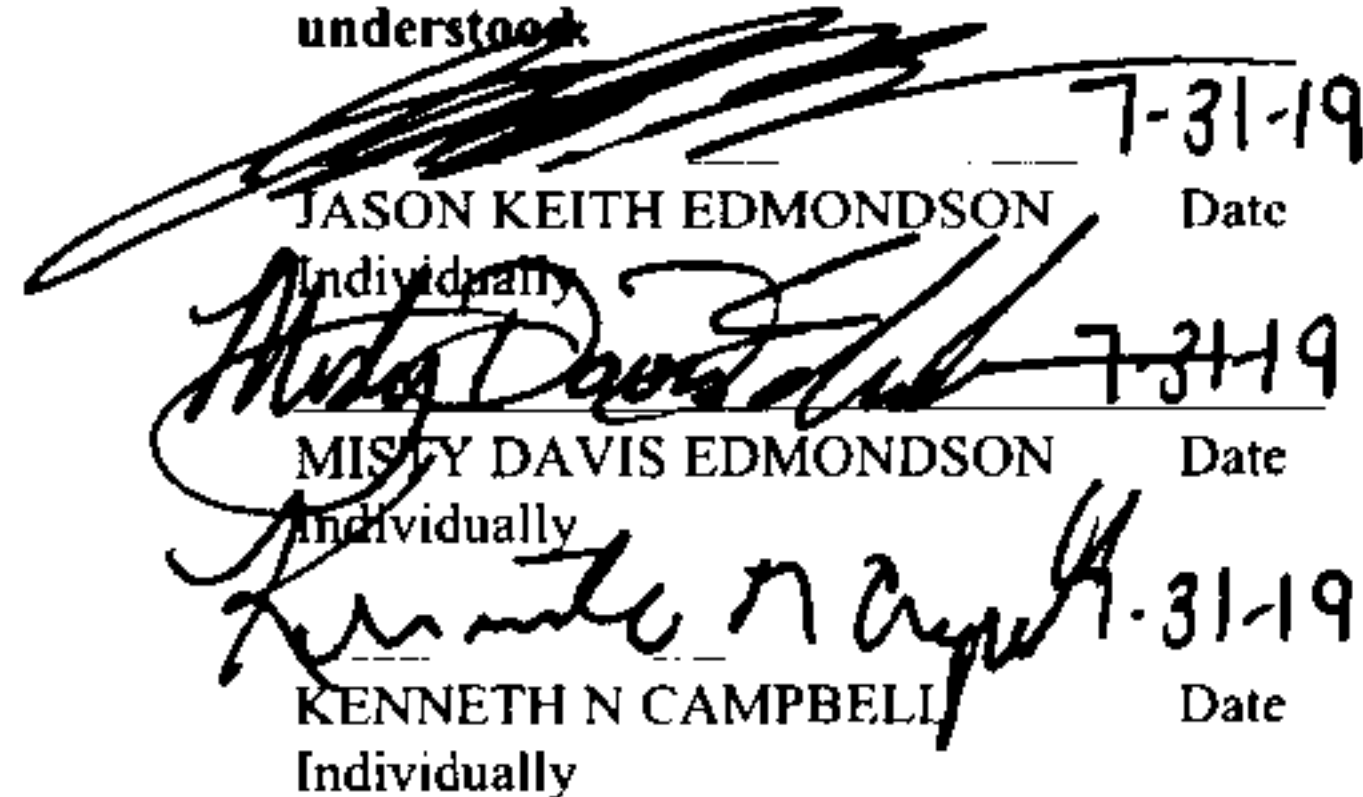 understood.
7-31-19
JASON KEITH EDMONDSON Date
Individually
Misty Davis Edmondson 7-31-19
MISTY DAVIS EDMONDSON Date
Individually
Kenneth N Campbell 7-31-19
KENNETH N CAMPBELL Date
Individually